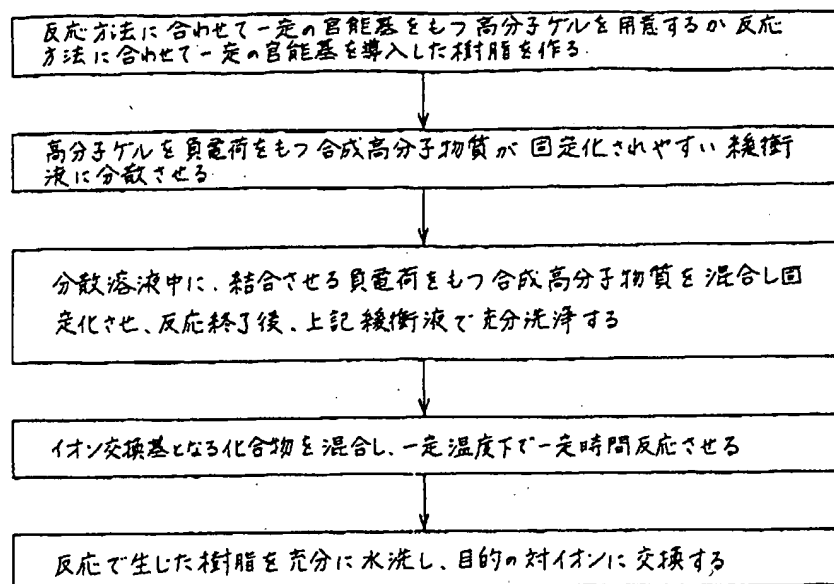 反応方法に合わせて一定の官能基をもつ高分子ゲルを用意するか反応
方法に合わせて一定の官能基を導入した樹脂を作る
高分子ゲルを負電荷をもつ合成高分子物質が固定化されやすい緩衝
液に分散させる
分散溶液中に、結合させる負電荷をもつ合成高分子物質を混合し固
定化させ、反応終了後、上記緩衝液で充分洗浄する
イオン交換基となる化合物を混合し、一定温度下で一定時間反応させる
反応で生じた樹脂を充分に水洗し、目的の対イオンに交換する